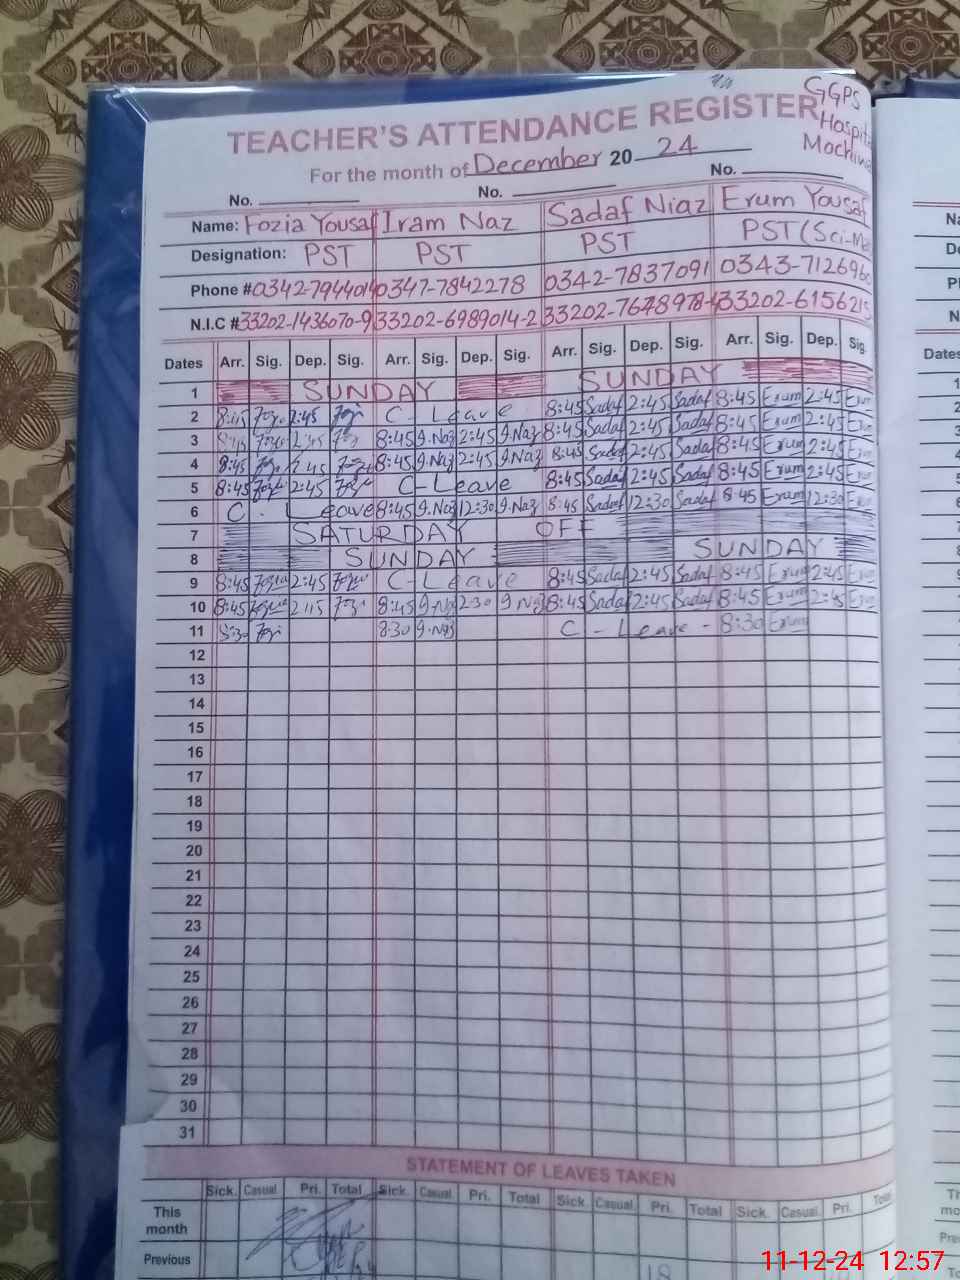 GGPS
TEACHER'S ATTENDANCE REGISTER
For the month of December 20 24
No. No. No.
Name: Fozia Yousaf Iram Naz Sadaf Niaz Erum Yousaf
Designation: PST PST PST PST (Sci-
Phone # 0347-7842278 0342-7837091 0343-712696
N.I.C # 33202-1436070-9 33202-6989014-2 33202-6156215
Dates Arr. Sig. Dep. Sig. Arr. Sig. Dep. Sig. Arr. Sig. Dep. Sig. Arr. Sig. Dep. Sig.
1 SUNDAY SUNDAY
2 2:45 C-Leave 8:45 Sadaf 2:45 Sadaf 8:45 Erum 2:45 Erum
3 2:45 8:45 9.Naz 2:45 9.Naz 8:45 Sadaf 2:45 Sadaf 8:45 Erum 2:45 Erum
4 8:45 2:45 8:45 9.Naz 2:45 9.Naz 8:45 Sadaf 2:45 Sadaf 8:45 Erum 2:45 Erum
5 8:45 2:45 C-Leave 8:45 Sadaf 2:45 Sadaf 8:45 Erum 2:45 Erum
6 C. Leave 8:45 9.Naz 12:30 9.Naz 8:45 Sadaf 12:30 Sadaf 8:45 Erum 12:30 Erum
7 SATURDAY OFF
8 SUNDAY SUNDAY
9 8:45 2:45 C-Leave 8:45 Sadaf 2:45 Sadaf 8:45 Erum 2:45 Erum
10 8:45 8:45 9.Naz 2:30 9.Naz 8:45 Sadaf 2:45 Sadaf 8:45 Erum 2:45 Erum
11 8:30 9.Naz C-Leave- 8:30 Erum
12
13
14
15
16
17
18
19
20
21
22
23
24
25
26
27
28
29
30
31
STATEMENT OF LEAVES TAKEN
Sick. Casual Pri. Total Sick. Casual Pri. Total Sick. Casual Pri. Total Sick. Casual Pri.
This month
Previous 18
11-12-24 12:57